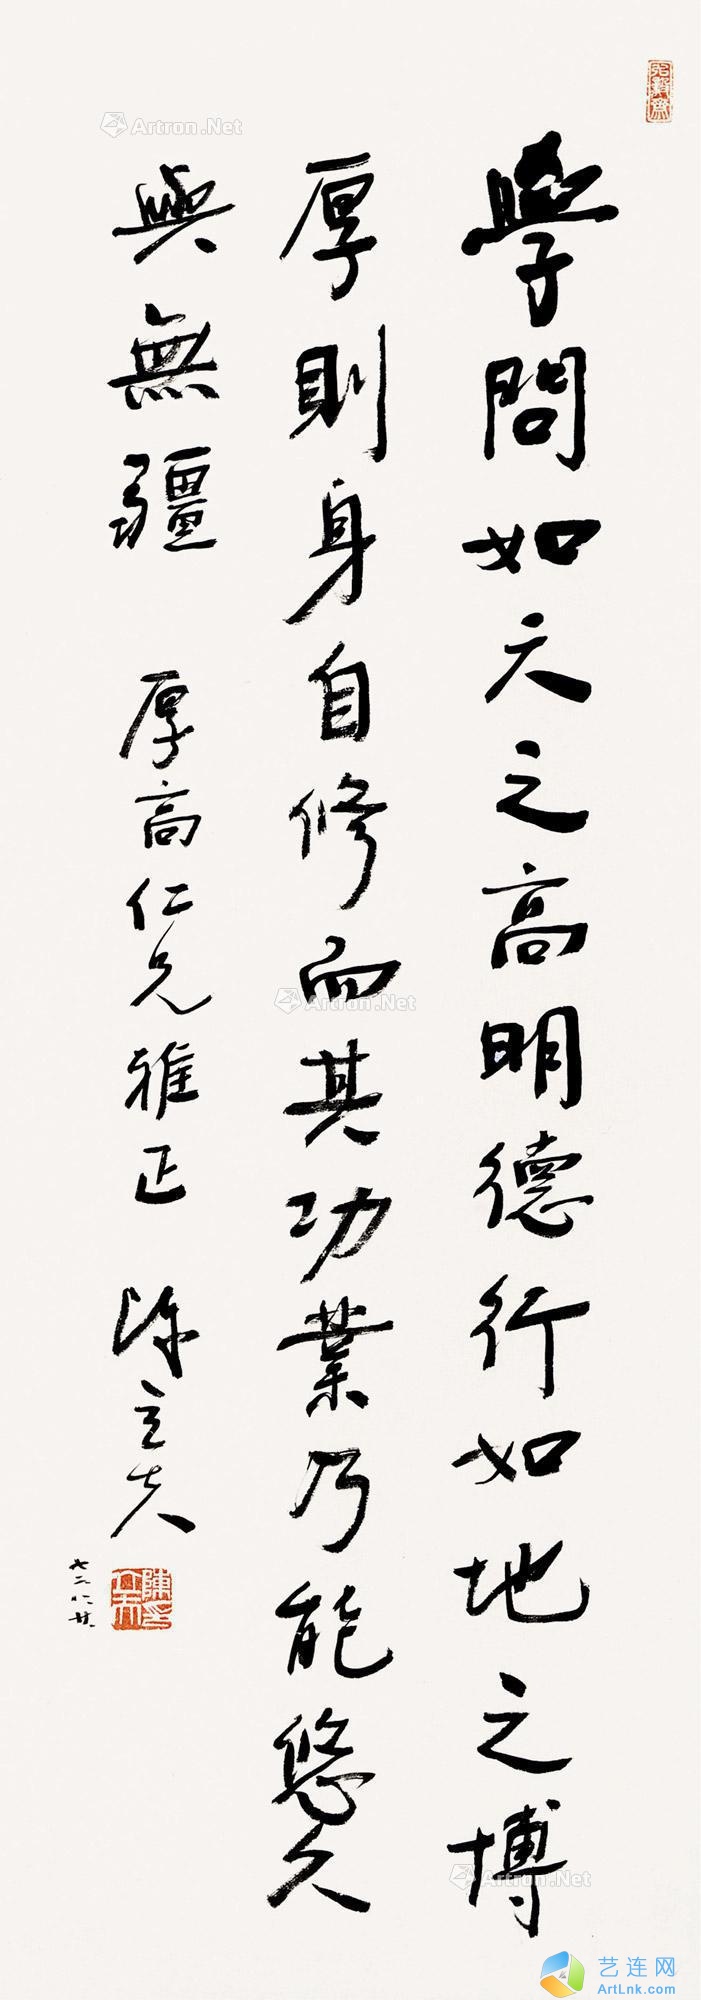 學問如天之高明德行如地之博
厚則身自修而其功業乃能悠久
與無疆
厚高仁兄雅正 陳立夫
陳立夫印
Artron.Net
Artron.Net
Artron.Net
艺连网
ArtLnk.com